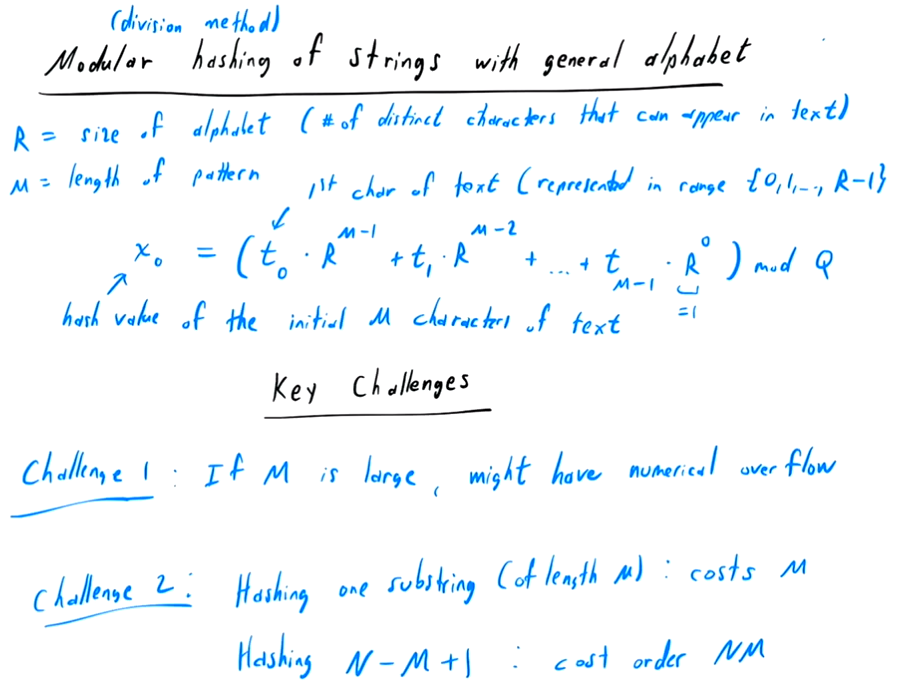 (division method)
Modular hashing of strings with general alphabet
R = size of alphabet (# of distinct characters that can appear in text)
M = length of pattern
1st char of text (represented in range {0,1,..., R-1}
x₀ = (t₀ · R^(M-1) + t₁ · R^(M-2) + ... + t_(M-1) · R⁰) mod Q
=1
hash value of the initial M characters of text
Key Challenges
Challenge 1 : If M is large, might have numerical overflow
Challenge 2 : Hashing one substring (of length M) : costs M
Hashing N-M+1 : cost order NM